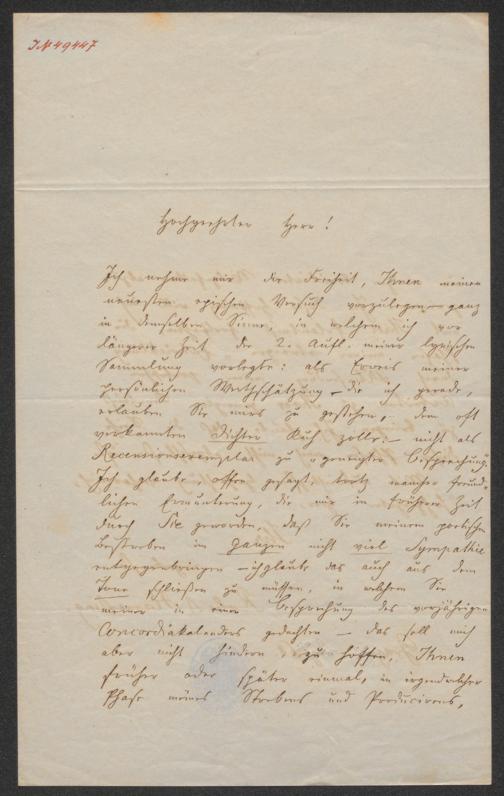 IN 49447
Hochgeehrter Herr!
Ich nehme mir die Freiheit, Ihnen meinen
neuesten epischen Versuch vorzulegen – ganz
in demselben Sinne, in welchem ich vor
längerer Zeit die 2. Aufl. meiner lyrischen
Sammlung vorlegte: als Erweis meiner
persönlichen Werthschätzung – die ich gerade,
erlauben Sie mir's zu gestehen, – dem oft
verkannten Dichter Kuh zolle: – nicht als
Recensionsexemplar zu geneigter Besprechung.
Ich glaube offen gesagt, trotz mancher freund-
lichen Ermunterung, die mir in früherer Zeit
durch Sie geworden, daß Sie meinem poetischen
Bestreben im Ganzen nicht viel Sympathie
entgegenbringen – ich glaube das auch aus dem
Tone schließen zu müssen, in welchem Sie
meiner in einer Besprechung des vorjährigen
Concordiakalenders gedachten – das soll mich
aber nicht hindern, zu hoffen, Ihnen
früher oder später einmal, in irgendwelcher
Phase meines Strebens und Producirens,